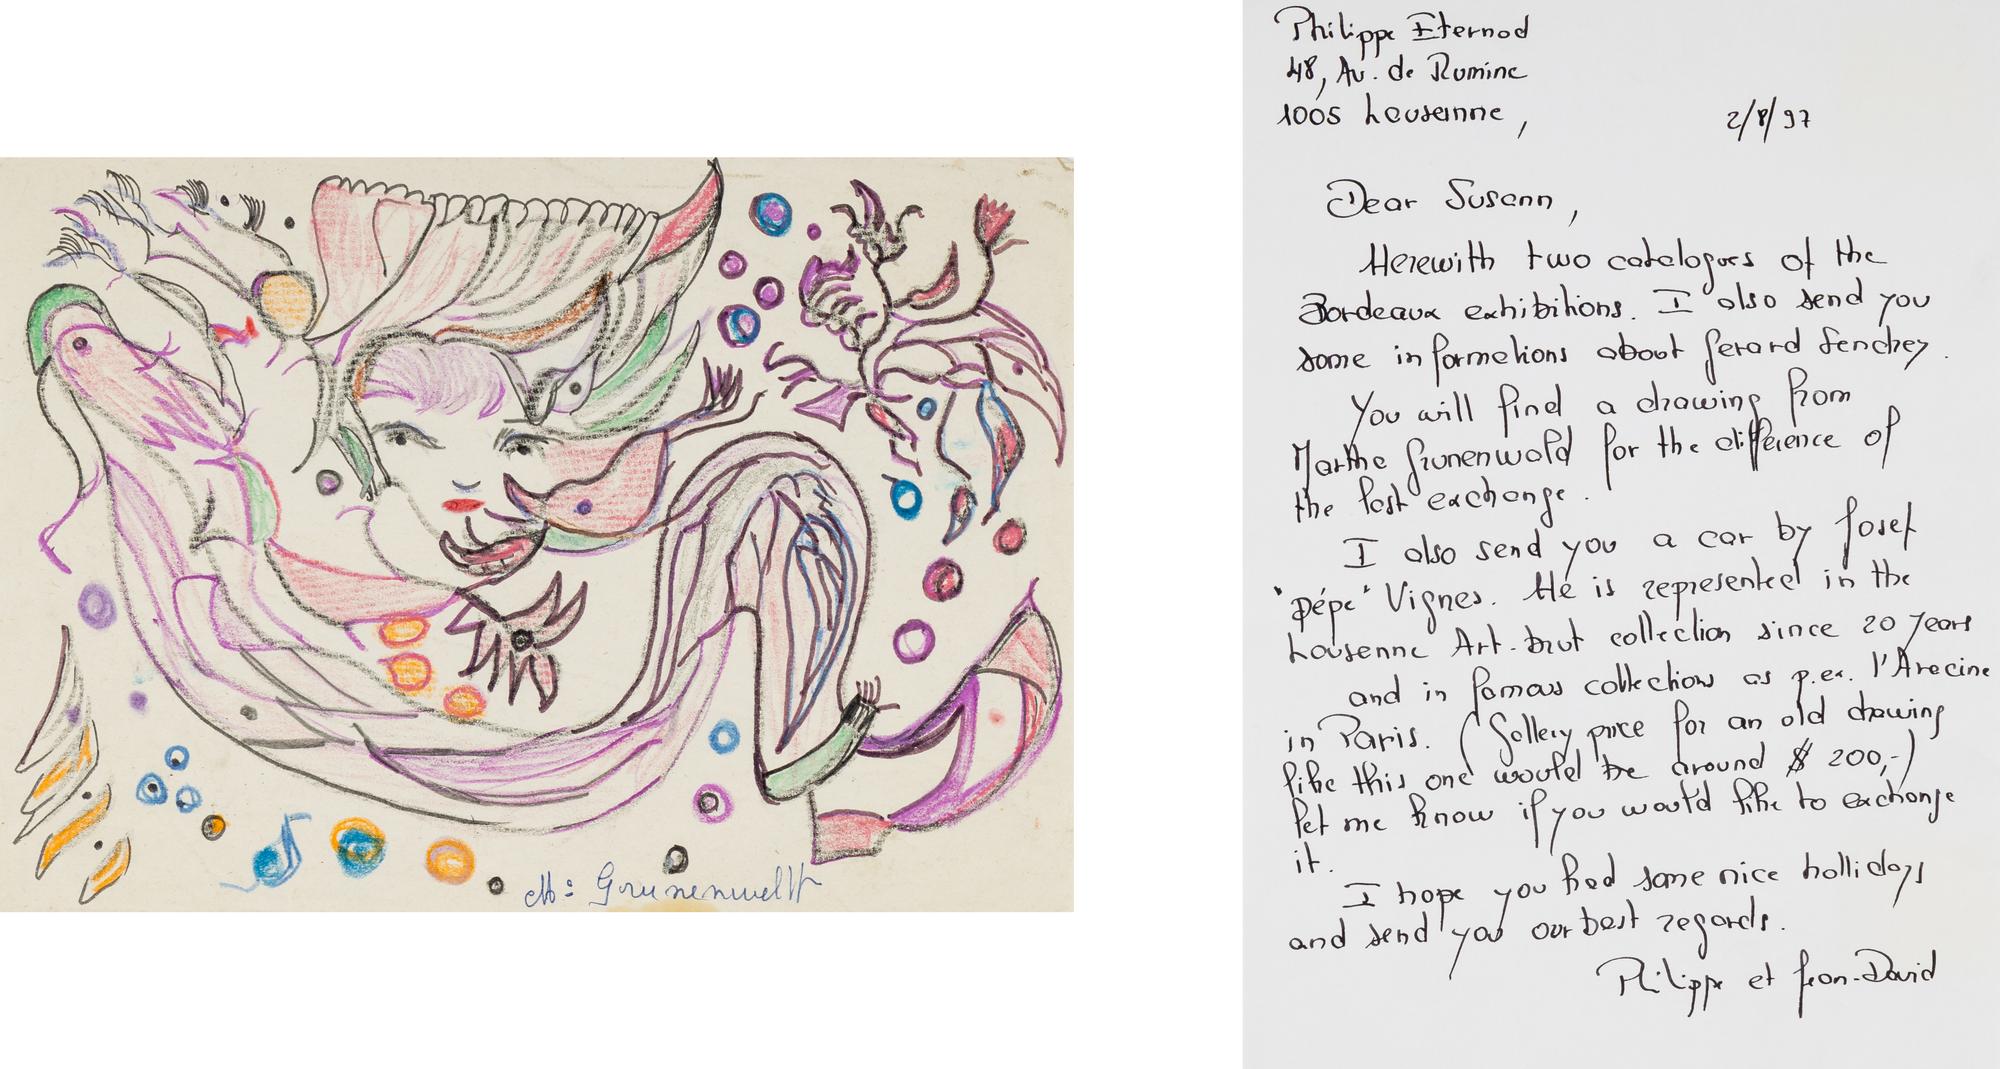 M: Grunenwelt
Philippe Eternod
48, Av. de Rumine
1005 Lausanne,
2/8/97
Dear Susann,
Herewith two catalogues of the
Bordeaux exhibitions. I also send you
some informations about Gerard Sendrey.
You will find a drawing from
Marthe Grunenwald for the difference of
the last exchange.
I also send you a car by Josef
"Pépé" Vignes. He is represented in the
Lausanne Art-brut collection since 20 years
and in famous collections as p.ex. l'Aracine
in Paris. (Gallery price for an old drawing
like this one would be around $ 200,-)
let me know if you would like to exchange
it.
I hope you had some nice hollidays
and send you our best regards.
Philippe et Jean-David